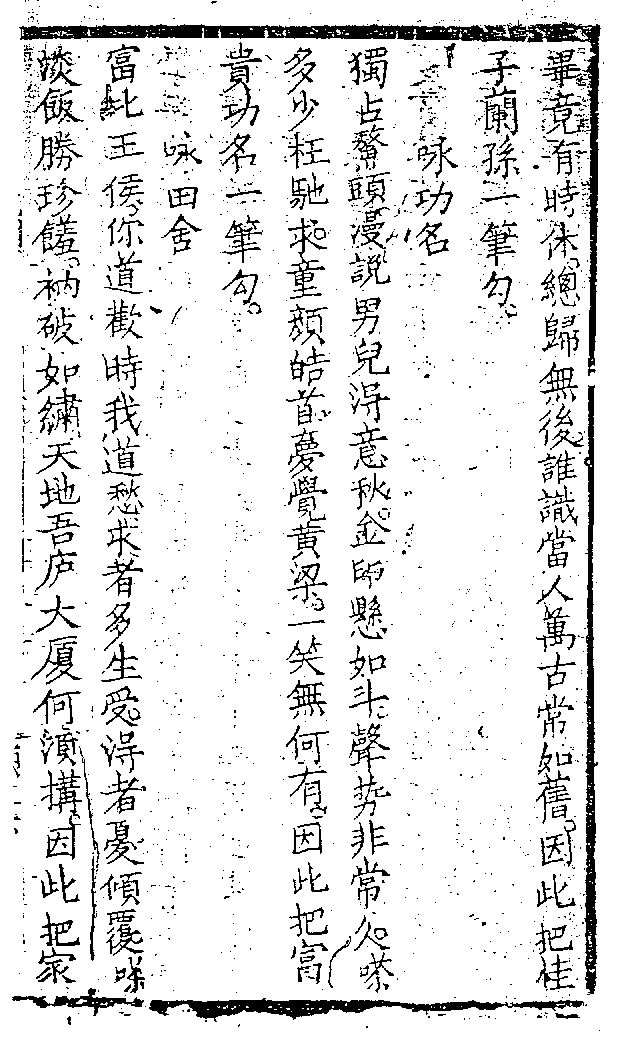 畢竟有時休。總歸無後。誰識當人萬古常如舊。因此把佳
子蘭孫一筆勾。
咏功名
獨占鰲頭。漫說男兒得意秋。金印懸如斗。聲势非常久。嗏
多少枉馳求。童顏皓首。夢覺黃梁。一笑無何有。因此把富
貴功名一筆勾。
咏田舍
富比王侯。你道歡時我道愁。求者多生受。得者憂傾覆。嗏
淡飯勝珍饈。衲破如繡。天地吾庐大厦何湏搆。因此把家